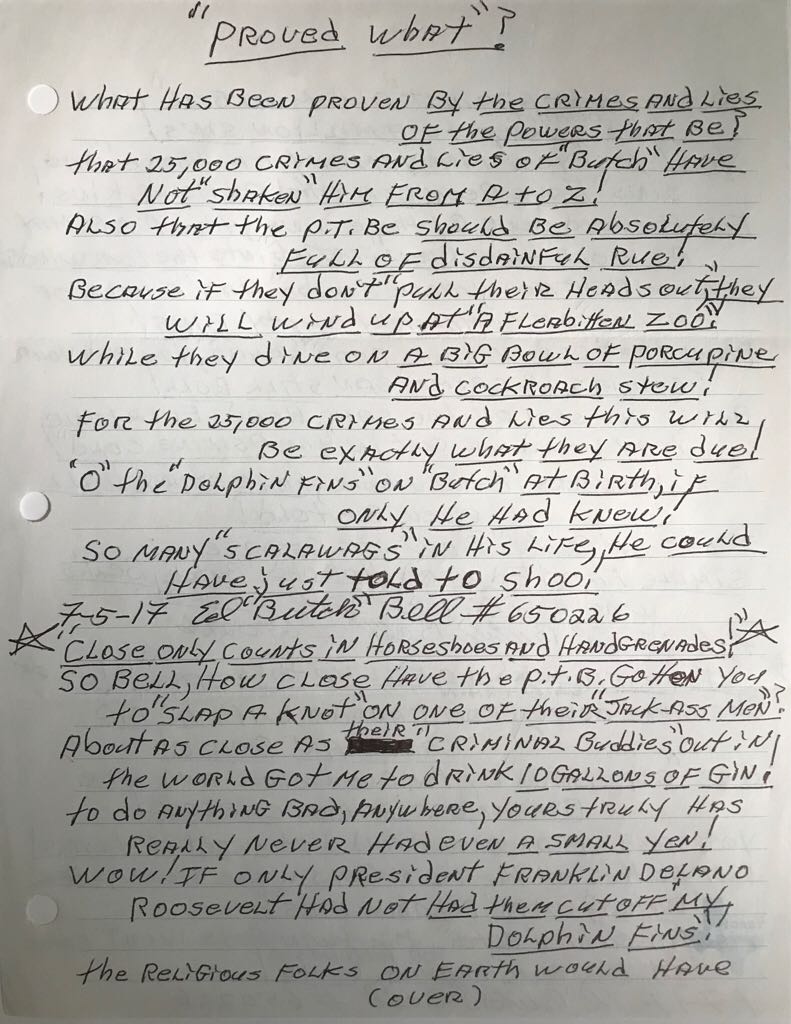 "Proved What"?
What Has Been proven By the crimes and Lies
of the powers that Be?
that 25,000 crimes and Lies of "Butch" Have
Not "shaken" Him From A to Z!
Also that the P.T. Be should Be Absolutely
Full of disdainful Rue!
Because if they don't "pull their Heads out," they
will wind up at "A Fleabitten Zoo"!
While they dine on A Big Bowl of porcupine
And cockroach stew!
For the 25,000 crimes and Lies this will
Be exactly what they are due!
"O" the "Dolphin Fins" on "Butch" At Birth, if
only He Had knew!
So many "scalawags" in His Life, He could
Have just told to shoo!
7-5-17 Ed "Butch" Bell # 650226
"Close only counts in Horseshoes and Handgrenades!"
So Bell, How close Have the p.t.B. Gotten you
to "Slap A Knot" on one of their "Jack-Ass Men"?
About as close as their "criminal Buddies" out in
the world Got me to drink 10 Gallons of Gin!
to do Anything Bad, Anywhere, yours truly Has
Really Never Had even A small yen!
Wow! If only president Franklin Delano
Roosevelt Had Not Had them cut off "My
Dolphin Fins"!
the Religious Folks on Earth would Have
(over)